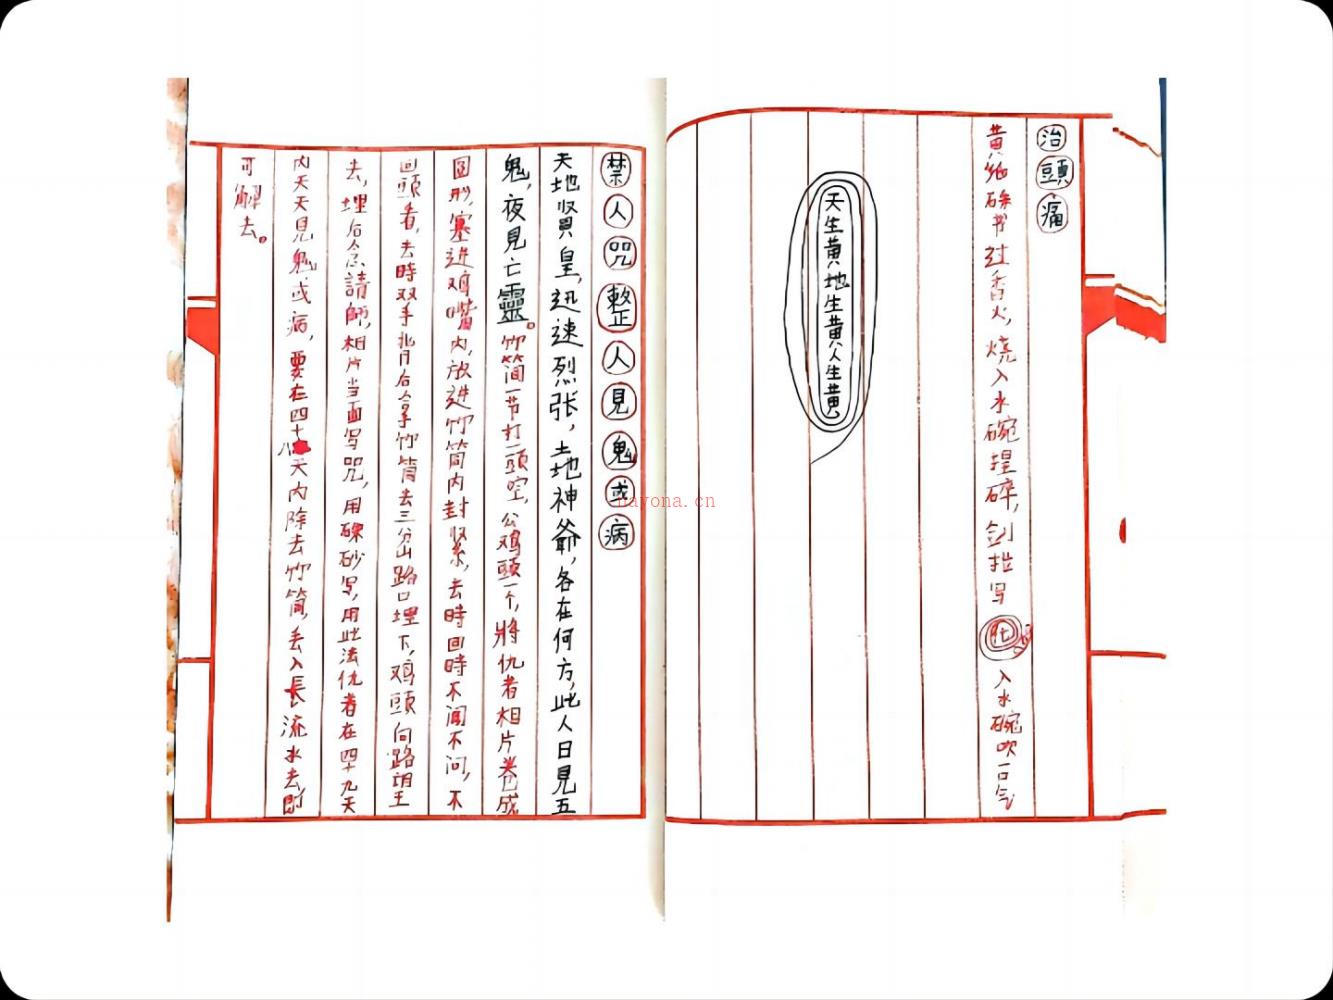 治頭痛
黄纸硃书过香火，烧入水碗捏碎，剑指写
入水碗吹一口气
天生黄地生黄人生黄
禁人咒整人見鬼或病
天地賢皇，迅速烈张，土地神爺，各在何方，此人日見五
鬼，夜見亡靈。竹筒一节打一頭空，公鸡頭一个，將仇者相片卷成
圆形，塞进鸡嘴内，放进竹筒内封紧，去時回時不闻不问，不
回頭看，去時双手背后拿竹筒去三分山路口埋下，鸡頭向路望
去，埋后念請師，相片当面写咒，用硃砂写，用此法仇者在四十九天
内天天見鬼或病，要在四十八天内除去竹筒，丢入長流水去即
可解去。
nayona.cn